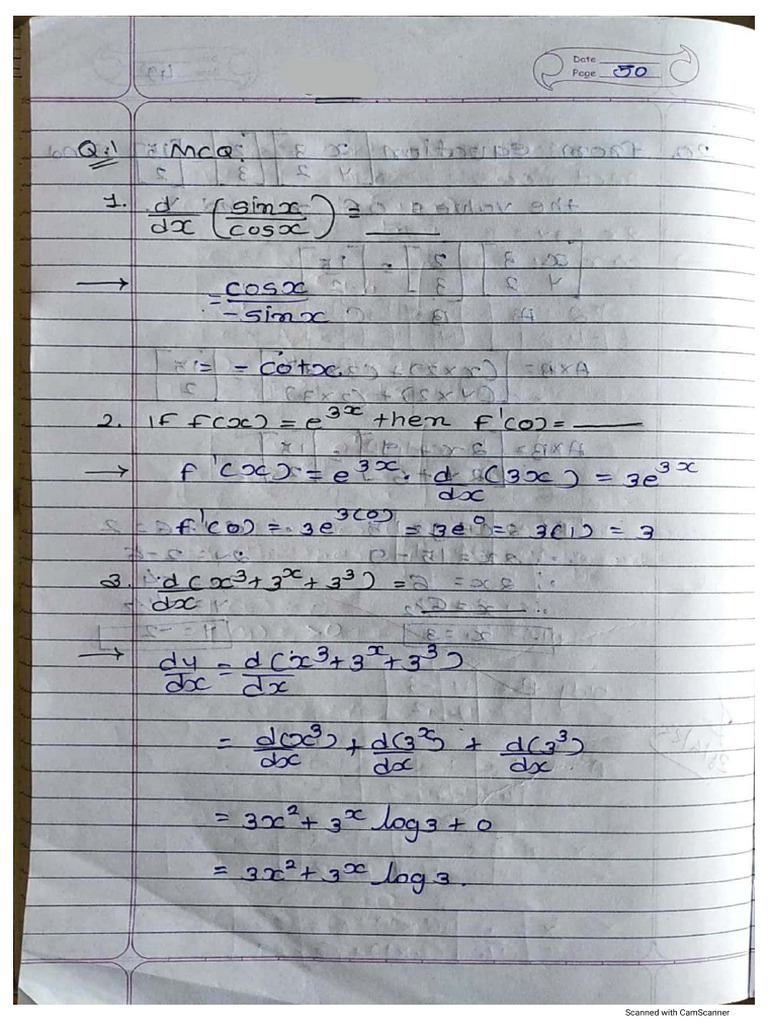 Date
Page 50
Q.1 MCQ.
1. d/dx (sinx/cosx) = ____
→ = cosx/-sinx
= - cotx.
2. If f(x) = e^3x then f'(0) = ____
→ f'(x) = e^3x . d/dx (3x) = 3e^3x
f'(0) = 3e^3(0) = 3e^0 = 3(1) = 3
3. d(x^3+3^x+3^3)/dx =
→ dy/dx = d(x^3+3^x+3^3)/dx
= d(x^3)/dx + d(3^x)/dx + d(3^3)/dx
= 3x^2 + 3^x log3 + 0
= 3x^2 + 3^x log3.
Scanned with CamScanner